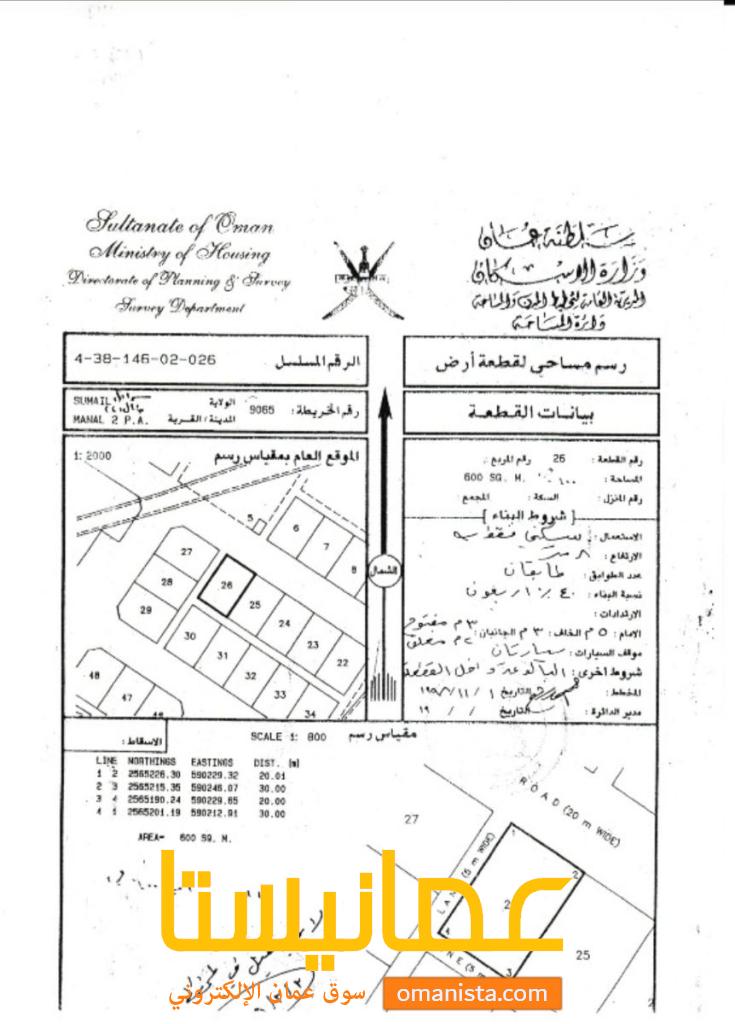 Sultanate of Oman
Ministry of Housing
Directorate of Planning & Survey
Survey Department
سلطنة عمان
وزارة الإسكان
المديرية العامة لتخطيط المدن والمساحة
دائرة المساحة
4-38-146-02-026 الرقم المسلسل
رسم مساحي لقطعة أرض
SUMAIL
MANAL 2 P.A.
الولاية
المدينة/القرية
رقم الخريطة: 9065
بيانات القطعة
1: 2000 الموقع العام بمقياس رسم
5
6
7
8
27
28
29
26
25
24
23
22
30
31
32
33
34
48
47
46
الشمال
رقم القطعة: 26 رقم المربع:
المساحة: 600 SQ. M. ٦٠٠
رقم المنزل: السكة: المجمع:
[شروط البناء]
الاستعمال: سكني فقط
الارتفاع: ٨ متر
عدد الطوابق: طابقان
نسبة البناء: ٤٠٪ اربعون
الارتدادات:
الامام: ٥ م الخلف: ٣ م الجانبان: ٣ م مفتوح ٢ م مغلق
موقف السيارات: سيارتان
شروط اخرى: البالوعة داخل القطعة
المخطط: التاريخ
مدير الدائرة: التاريخ / / ١٩
الاسقاط:
SCALE 1: 800 مقياس رسم
LINE NORTHINGS EASTINGS DIST. (m)
1 2 2565226.30 590229.32 20.01
2 3 2565215.35 590246.07 30.00
3 4 2565190.24 590229.65 20.00
4 1 2565201.19 590212.91 30.00
AREA= 600 SQ. M.
27
ROAD (20 m WIDE)
LANE (5 m WIDE)
1
2
3
4
25
عمانيستا
سوق عمان الإلكتروني
omanista.com